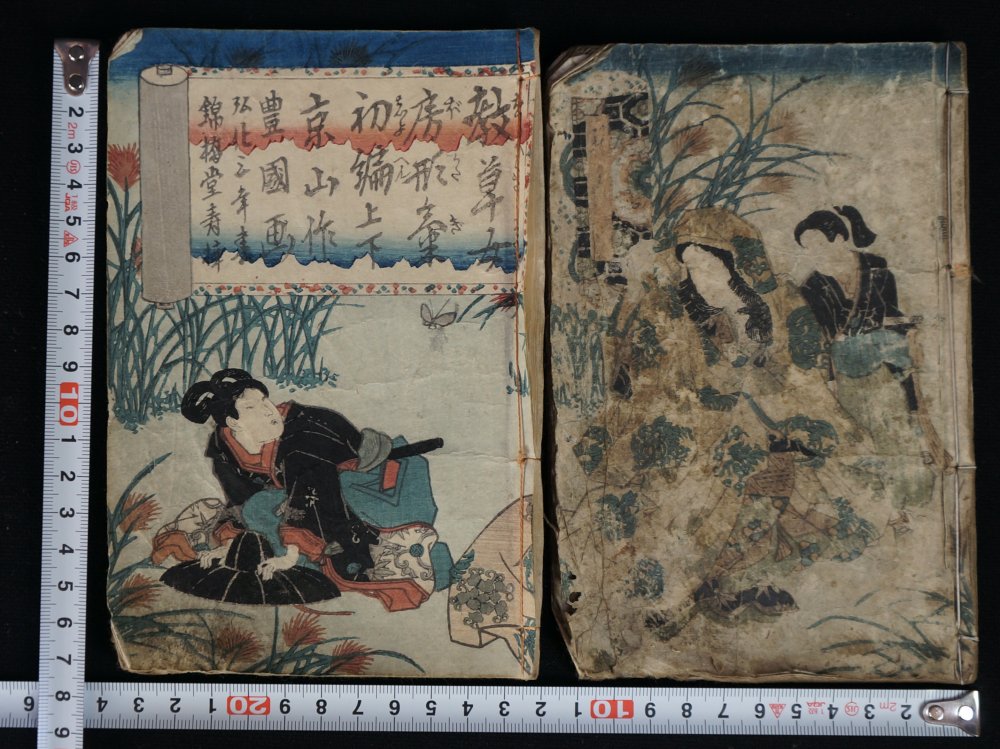 教草女
房形氣
初編上下
京山作
豊國画
弘化三年春
錦橋堂壽梓
2 2m 3 JIS 4 5 6 7 8 9 10 1 2 3 4 5 6 7 8 9
2 2m 3 JIS 4 5 6 7 8 9 10 1 2 3 4 5 6 7 8 9 20 1 2 3 4 5 6